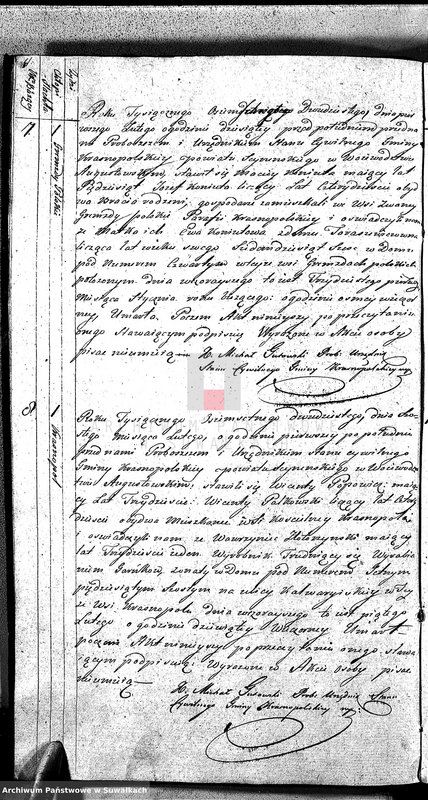 7
Roku Tysiącznego Ośmsetnego Dwudziestego dnia pier
wszego Lutego ogodzinie dziesiątey przed południem przed na
mi Proboszczem i Urzędnikiem Stanu Cywilnego Gminy
Krasnopolskiey powiatu Seyneńskiego w Woiewodztwie
Augustowskim, stawił się Maciey Kaniuta maiący lat
Pięćdziesiąt Jozef Kaniuta liczący Lat Czterdzieści oby
dwa bracia rodzeni, gospodarze zamieszkali we Wsi zwaney
polskie Parafii Krasnopolskiey i oświadczyli nam
że Matka ich Ewa Kaniutowa z domu
licząca lat wieku swego Siedemdziesiąt Sześć w Domu
pod Numerem Czwartym wteyże wsi polskich
położonym dnia wczorayszego to iest Trzydziestego pierwszego
Miesiąca Stycznia roku bieżącego: ogodzinie osmey wieczor
ney, Umarła. Poczem Akt niniejszy, po przeczytaniu
onego Stawaiącym podpisuię Wyrażone w Akcie osoby
pisać nieumieią — X. Michał Prob. Urzędnik
Stanu Cywilnego Gminy Krasnopolskiey mp
8
1 Krasnopol
Roku Tysiącznego Ośmsetnego dwudziestego, dnia szó-
stego miesiąca Lutego, o godzinie pierwszey po południu
przed nami Proboszczem i Urzędnikiem Stanu cywilnego
Gminy Krasnopolskiey powiatu Seyneńskiego w Woiewodz-
twie Augustowskim, stawili się Wincenty Popowicz: maią
cy Lat Trzydzieści: Wincenty Putkowski liczący lat Czter
dzieści obydwa Mieszkańce Wsi Kościelney Krasnopola
i oświadczyli nam że Wawrzyniec maiący
lat Trzydzieści ieden Wyrobnik Trudniący się Wyrabia
niem Garnków, żonaty w Domu pod Numerem Setnym
pięćdziesiątym Szostym na ulicy Kalwaryiskiey w Tey
że Wsi Krasnopolu dnia wczorayszego to iest piątego
Lutego o godzinie dziewiątey Wieczorney Umarł —
poczem Akt niniejszy po przeczytaniu onego stawa
iącym podpisuię: Wyrażone w Akcie osoby pisać
nieumieią —
X. Michał Prob. Urzędnik Stanu
Cywilnego Gminy Krasnopolskiey mp:
Archiwum Państwowe w Suwałkach